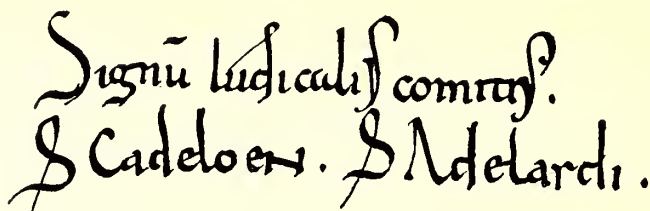 Signū Iudicalis comitis.
S Cadeloen. S Adelardi.